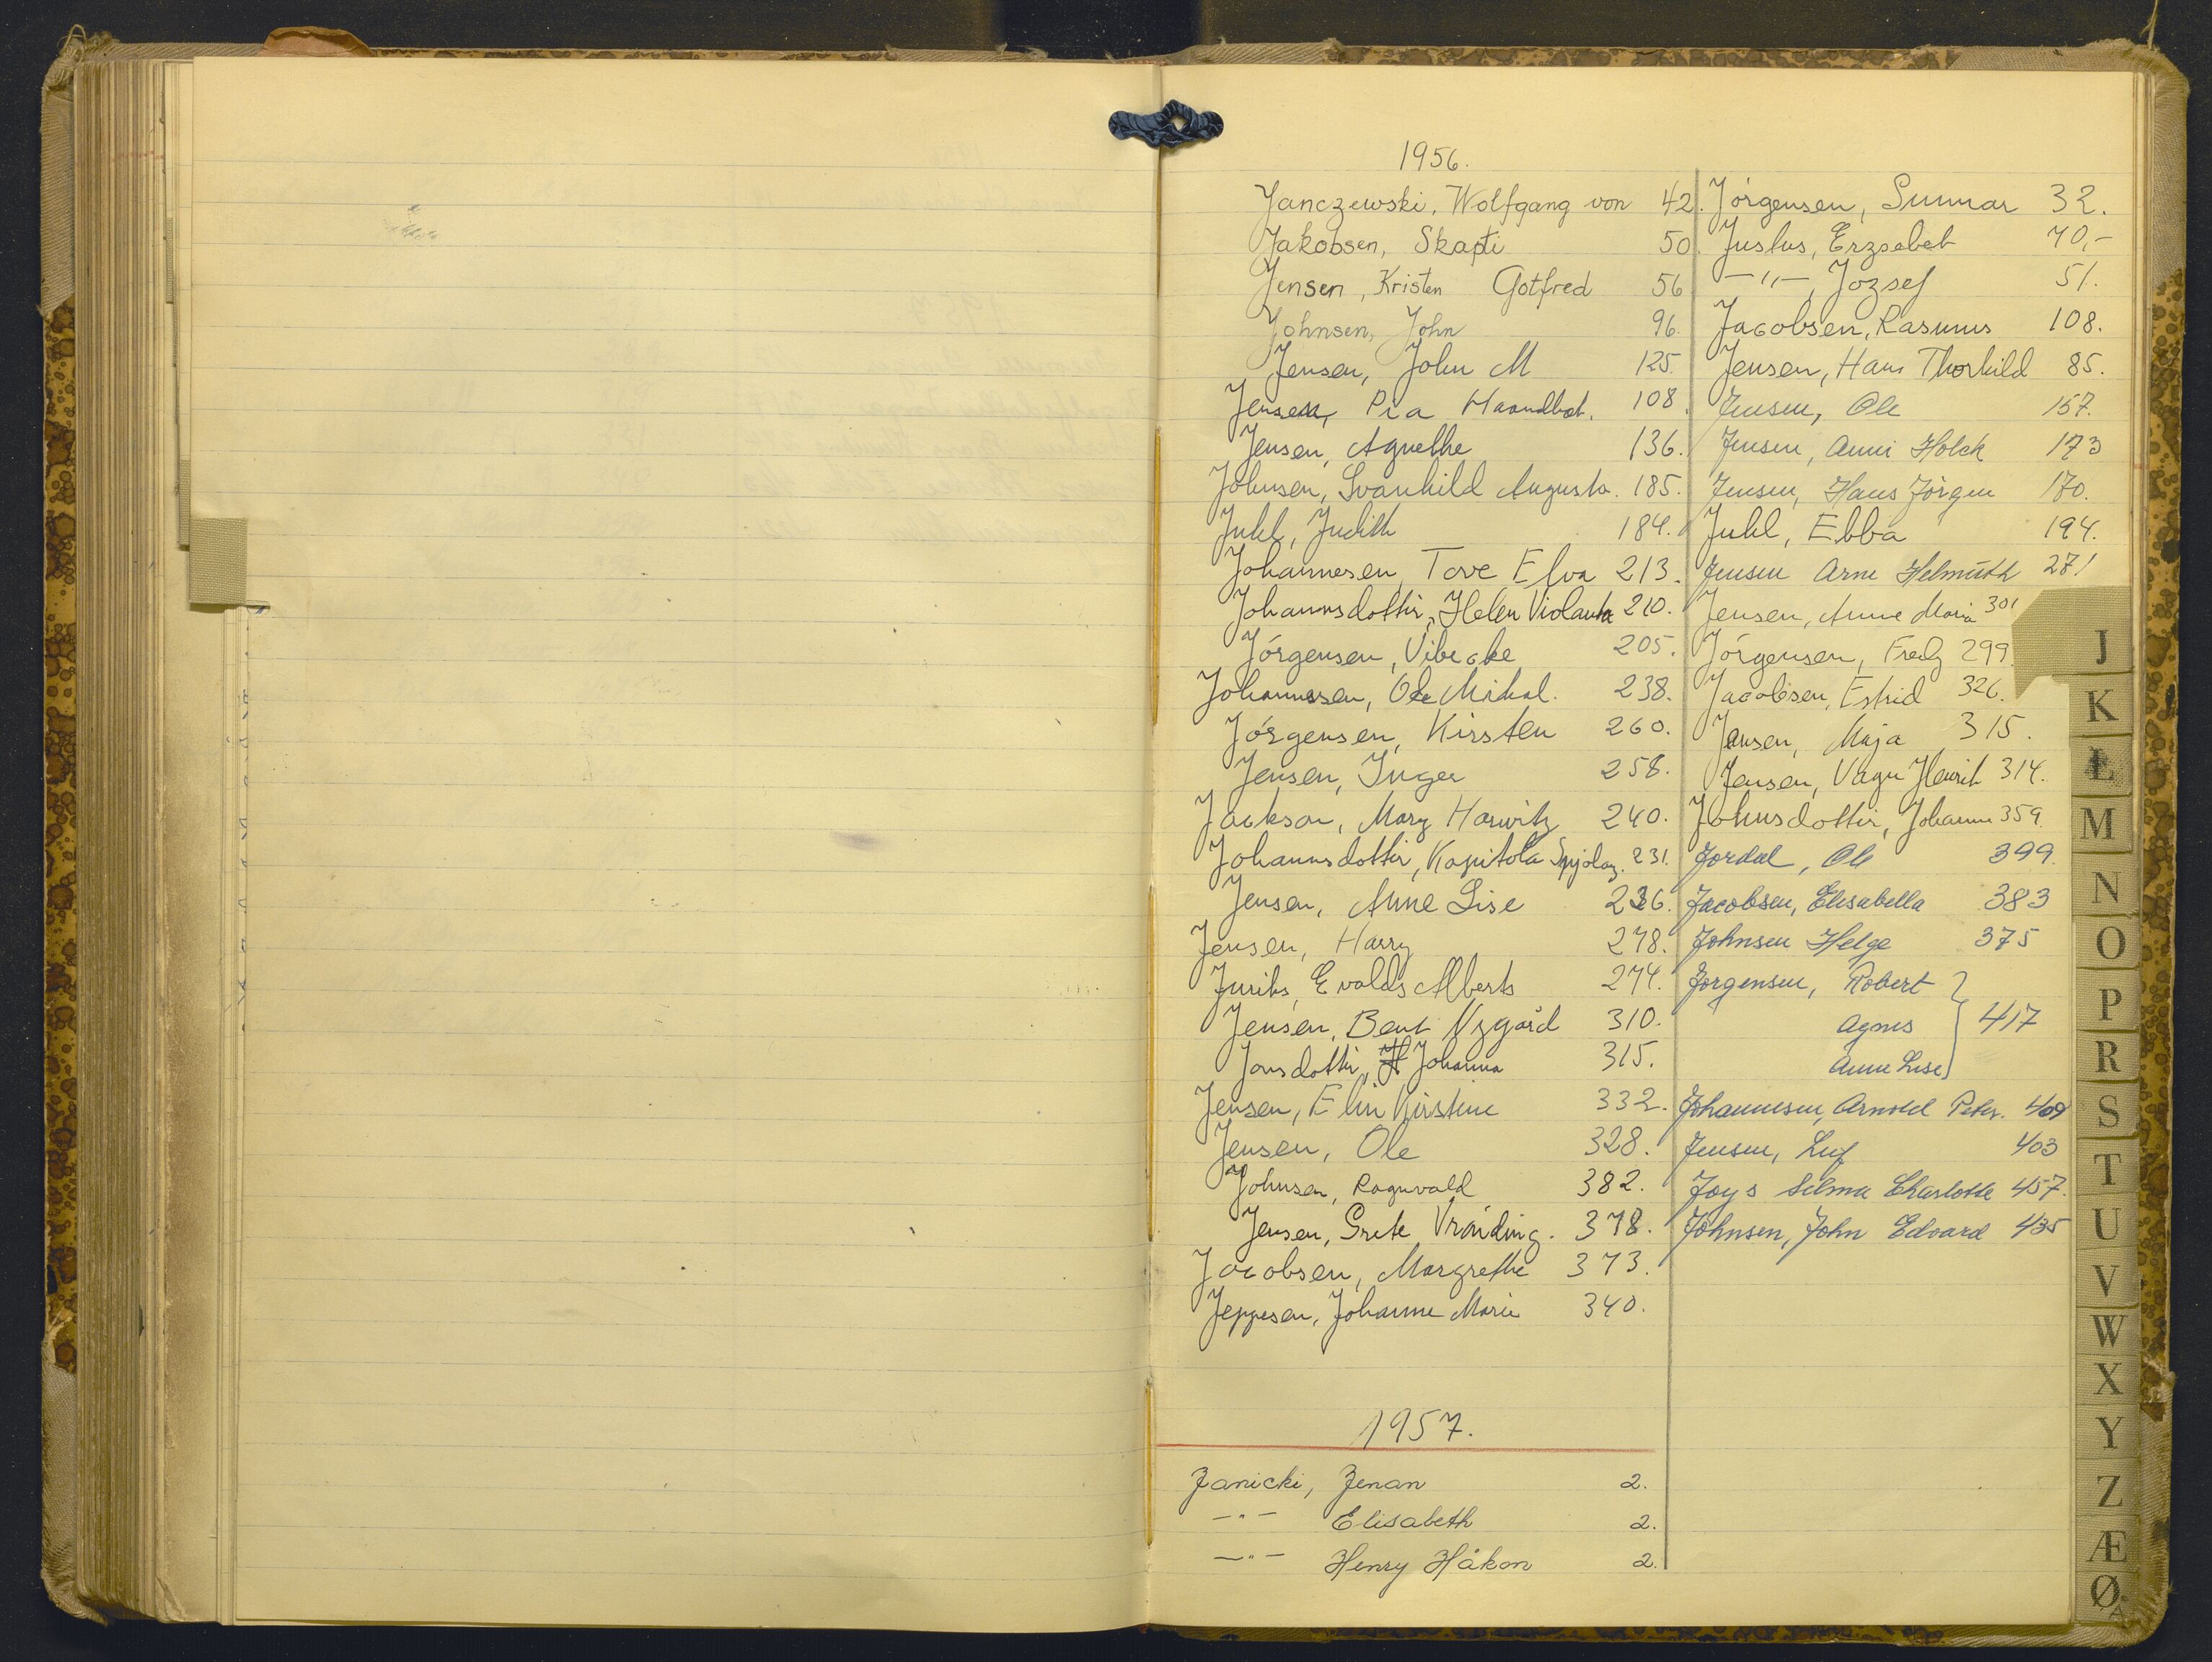 1956.
Janczewski, Wolfgang von 42.
Jakobsen, Skapti 50
Jensen, Kristen Gotfred 56
Johnsen, John 96.
Jensen, John M 125.
Jensen, Pia 108.
Jensen, Agnethe 136.
Johnsen, Svanhild Augusta. 185.
Juhl, Judith 184.
Johannesen, Tove Elva 213.
Johannsdottir, Helen Violanta 210.
Jörgensen, Vibecke 205.
Johannessen, Ole Mikal. 238.
Jörgensen, Kirsten 260.
Jensen, Inger 258.
Jackson, Mary Horwitz 240.
Johannsdottir, Kapitola 231.
Jensen, Anne Lise 236.
Jensen, Harry 278.
Juriks, Evalds Alberts 274.
Jensen, Bent Nygård 310.
Jonsdottir, Johanna 315.
Jensen, Elin Kirstine 332.
Jensen, Ole 328.
Johnsen, Ragnvald 382.
Jensen, Grete 378.
Jacobsen, Margrethe 373.
Jeppesen, Johanne Marie 340.
Jörgensen, Gunnar 32.
Justus, Erzsebet 70,-
-"-, Jozsef 51.
Jacobsen, Rasmus 108.
Jensen, Hans Thorkild 85.
Jensen, Ole 157.
Jensen, Anni Holck 173
Jensen, Hans Jörgen 170.
Juhl, Ebba 194.
Jensen Arne Helmuth 271
Jensen, Anne Maria 301
Jörgensen, Fredy 299.
Jacobsen, Estrid 326.
Jensen, Maja 315.
Jensen, Vagn Henrik 314.
Johnsdottir, Johanne 359
Jordal, Ole 399.
Jacobsen, Elisabella 383
Johnsen Helge 375
Jorgensen, Robert
Agnes 417
Anne Lise
Johannesen, Arnold Peter. 409
Jensen, Leif 403
Joys Selma Charlotte 457.
Johnsen, John Edvard 435
1957.
Janicki, Zenan 2.
-"- Elisabeth 2.
-"- Henry Håkon 2.
J
K
L
M
N
O
P
R
S
T
U
V
W
X
Y
Z
Æ
Ø
Å